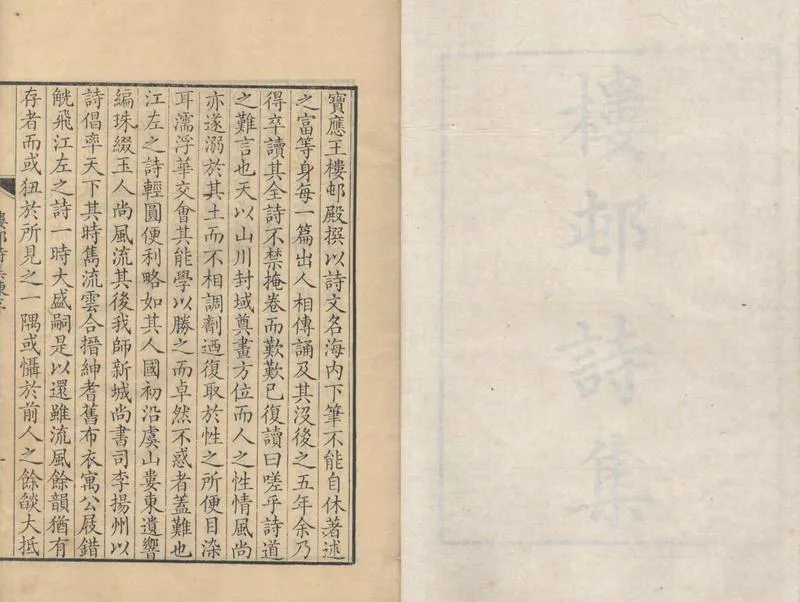 樓邨詩集
寶應王樓邨殿撰以詩文名海內下筆不能自休著述
之富等身每一篇出人相傳誦及其沒後之五年余乃
得卒讀其全詩不禁掩卷而歎歎已復讀曰嗟乎詩道
之難言也天以山川封域奠畫方位而人之性情風尚
亦遂溺於其土而不相調劑迺復取於性之所便目染
耳濡浮華交會其能學以勝之而卓然不惑者蓋難也
江左之詩輕圓便利略如其人國初沿虞山婁東遺響
編珠綴玉人尚風流其後我師新城尚書司李揚州以
詩倡率天下其時雋流雲合搢紳耆舊布衣寓公屐錯
觥飛江左之詩一時大盛嗣是以還雖流風餘韻猶有
存者而或狃於所見之一隅或懾於前人之餘燄大抵